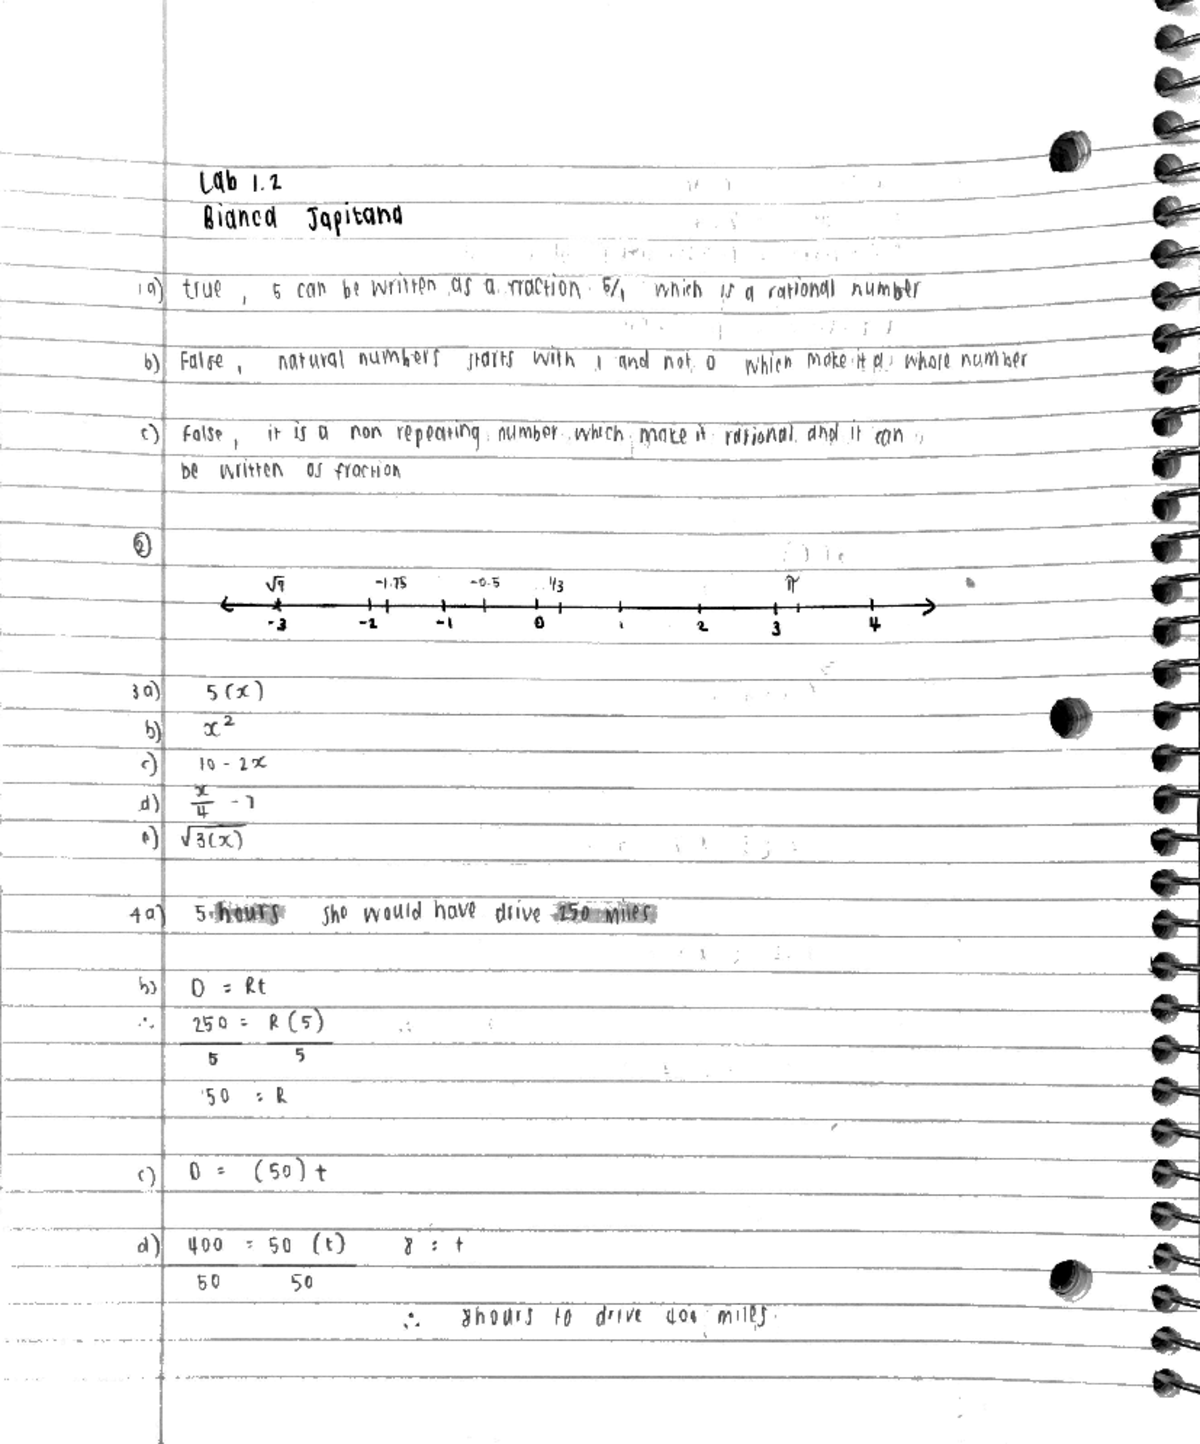 Lab 1.2
Bianca Japitana
1a) true, 5 can be written as a fraction 5/1 which is a rational number
b) False, natural numbers starts with 1 and not 0 which make it a whole number
c) False, it is a non repeating number which make it rational and it can
be written as fraction
②
√9 -1.75 -0.5 1/3 π
-3 -2 -1 0 1 2 3 4
3a) 5(x)
b) x²
c) 10 - 2x
d) x/4 - 7
e) √3(x)
4a) 5 hours she would have drive 250 miles
b) D = Rt
∴ 250 = R(5)
5 5
50 = R
c) D = (50)t
d) 400 = 50 (t) 8 = t
50 50
∴ 8hours to drive 400 miles.